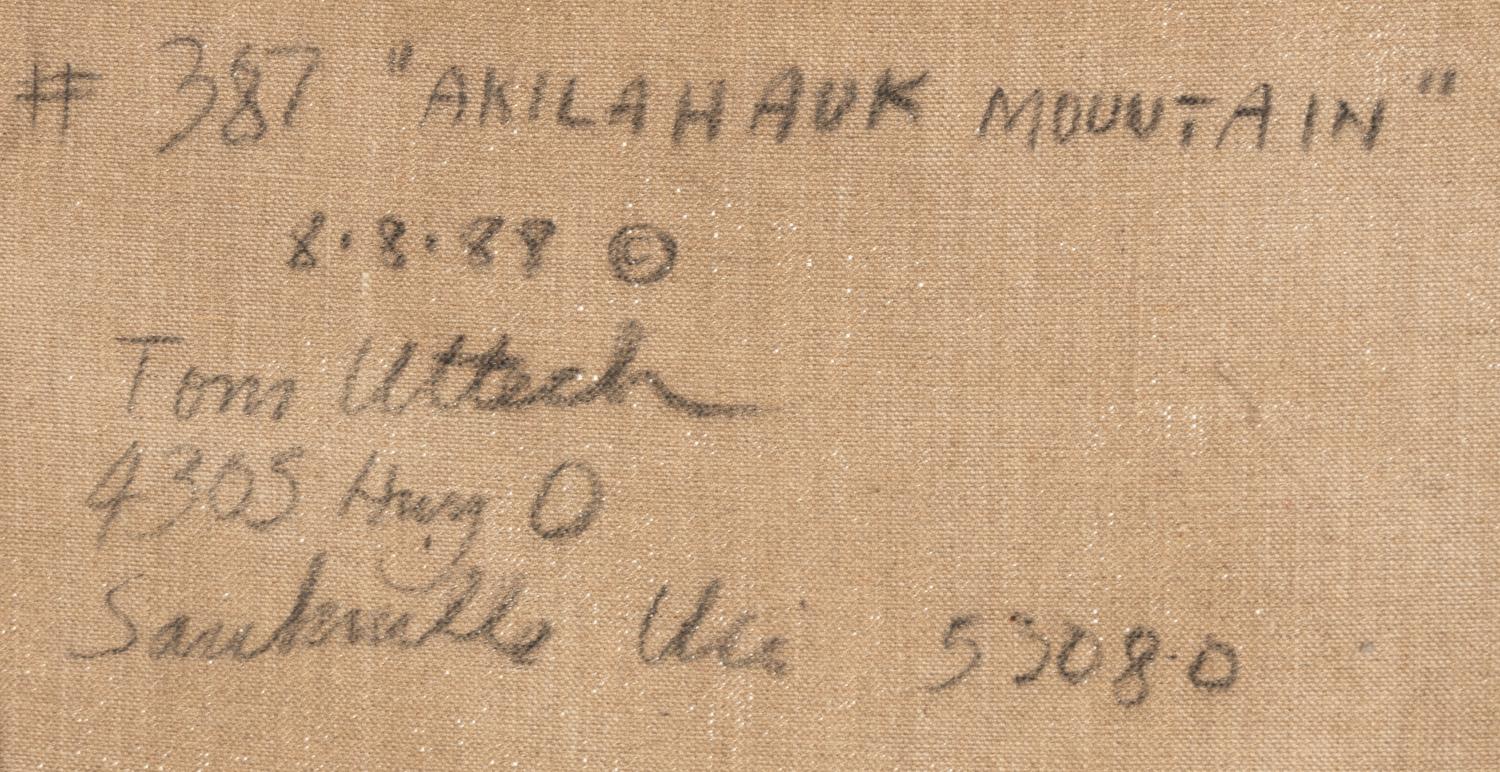 # 387 "AKILAHAUK MOUNTAIN"
8.8.88 ©
Tom Uttech
4305 Hwy O
Saukville Wis 53080